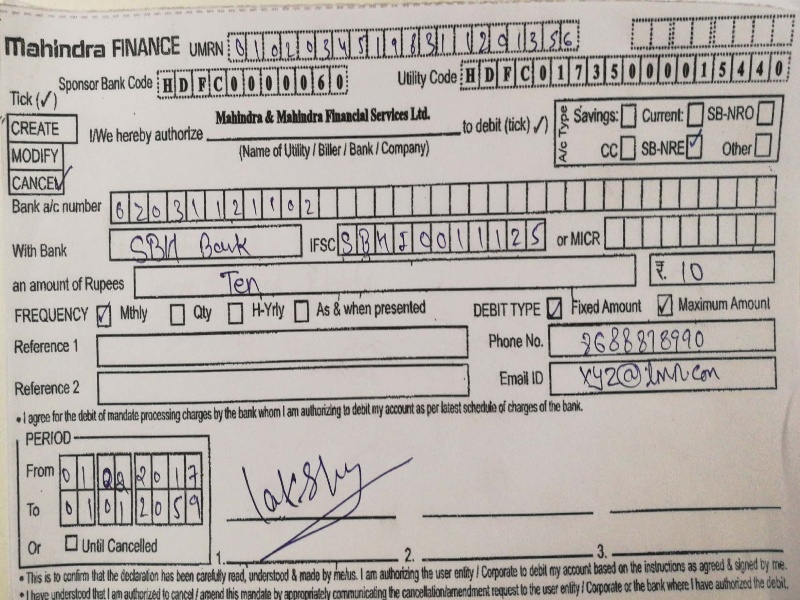 Mahindra FINANCE UMRN 01020345198311201356
Sponsor Bank Code HDFC0000060 Utility Code HDFC01735000015440
Tick (✓)
CREATE
MODIFY
CANCEL
I/We hereby authorize Mahindra & Mahindra Financial Services Ltd. to debit (tick) ✓)
(Name of Utility / Biller / Bank / Company)
A/c Type Savings: Current: SB-NRO
CC SB-NRE ✓ Other
Bank a/c number 62031121102
With Bank SBH Bank IFSC or MICR
an amount of Rupees Ten ₹ 10
FREQUENCY ✓ Mthly Qty H-Yrly As & when presented DEBIT TYPE ✓ Fixed Amount ✓ Maximum Amount
Reference 1 Phone No. 2688878990
Reference 2 Email ID
• I agree for the debit of mandate processing charges by the bank whom I am authorizing to debit my account as per latest schedule of charges of the bank.
PERIOD
From 01 2017
To 01 01 2059
Or Until Cancelled
lakshy
1. 2. 3.
• This is to confirm that the declaration has been carefully read, understood & made by me/us. I am authorizing the user entity / Corporate to debit my account based on the instructions as agreed & signed by me.
• I have understood that I am authorized to cancel / amend this mandate by appropriately communicating the cancellation/amendment request to the user entity / Corporate or the bank where I have authorized the debit.